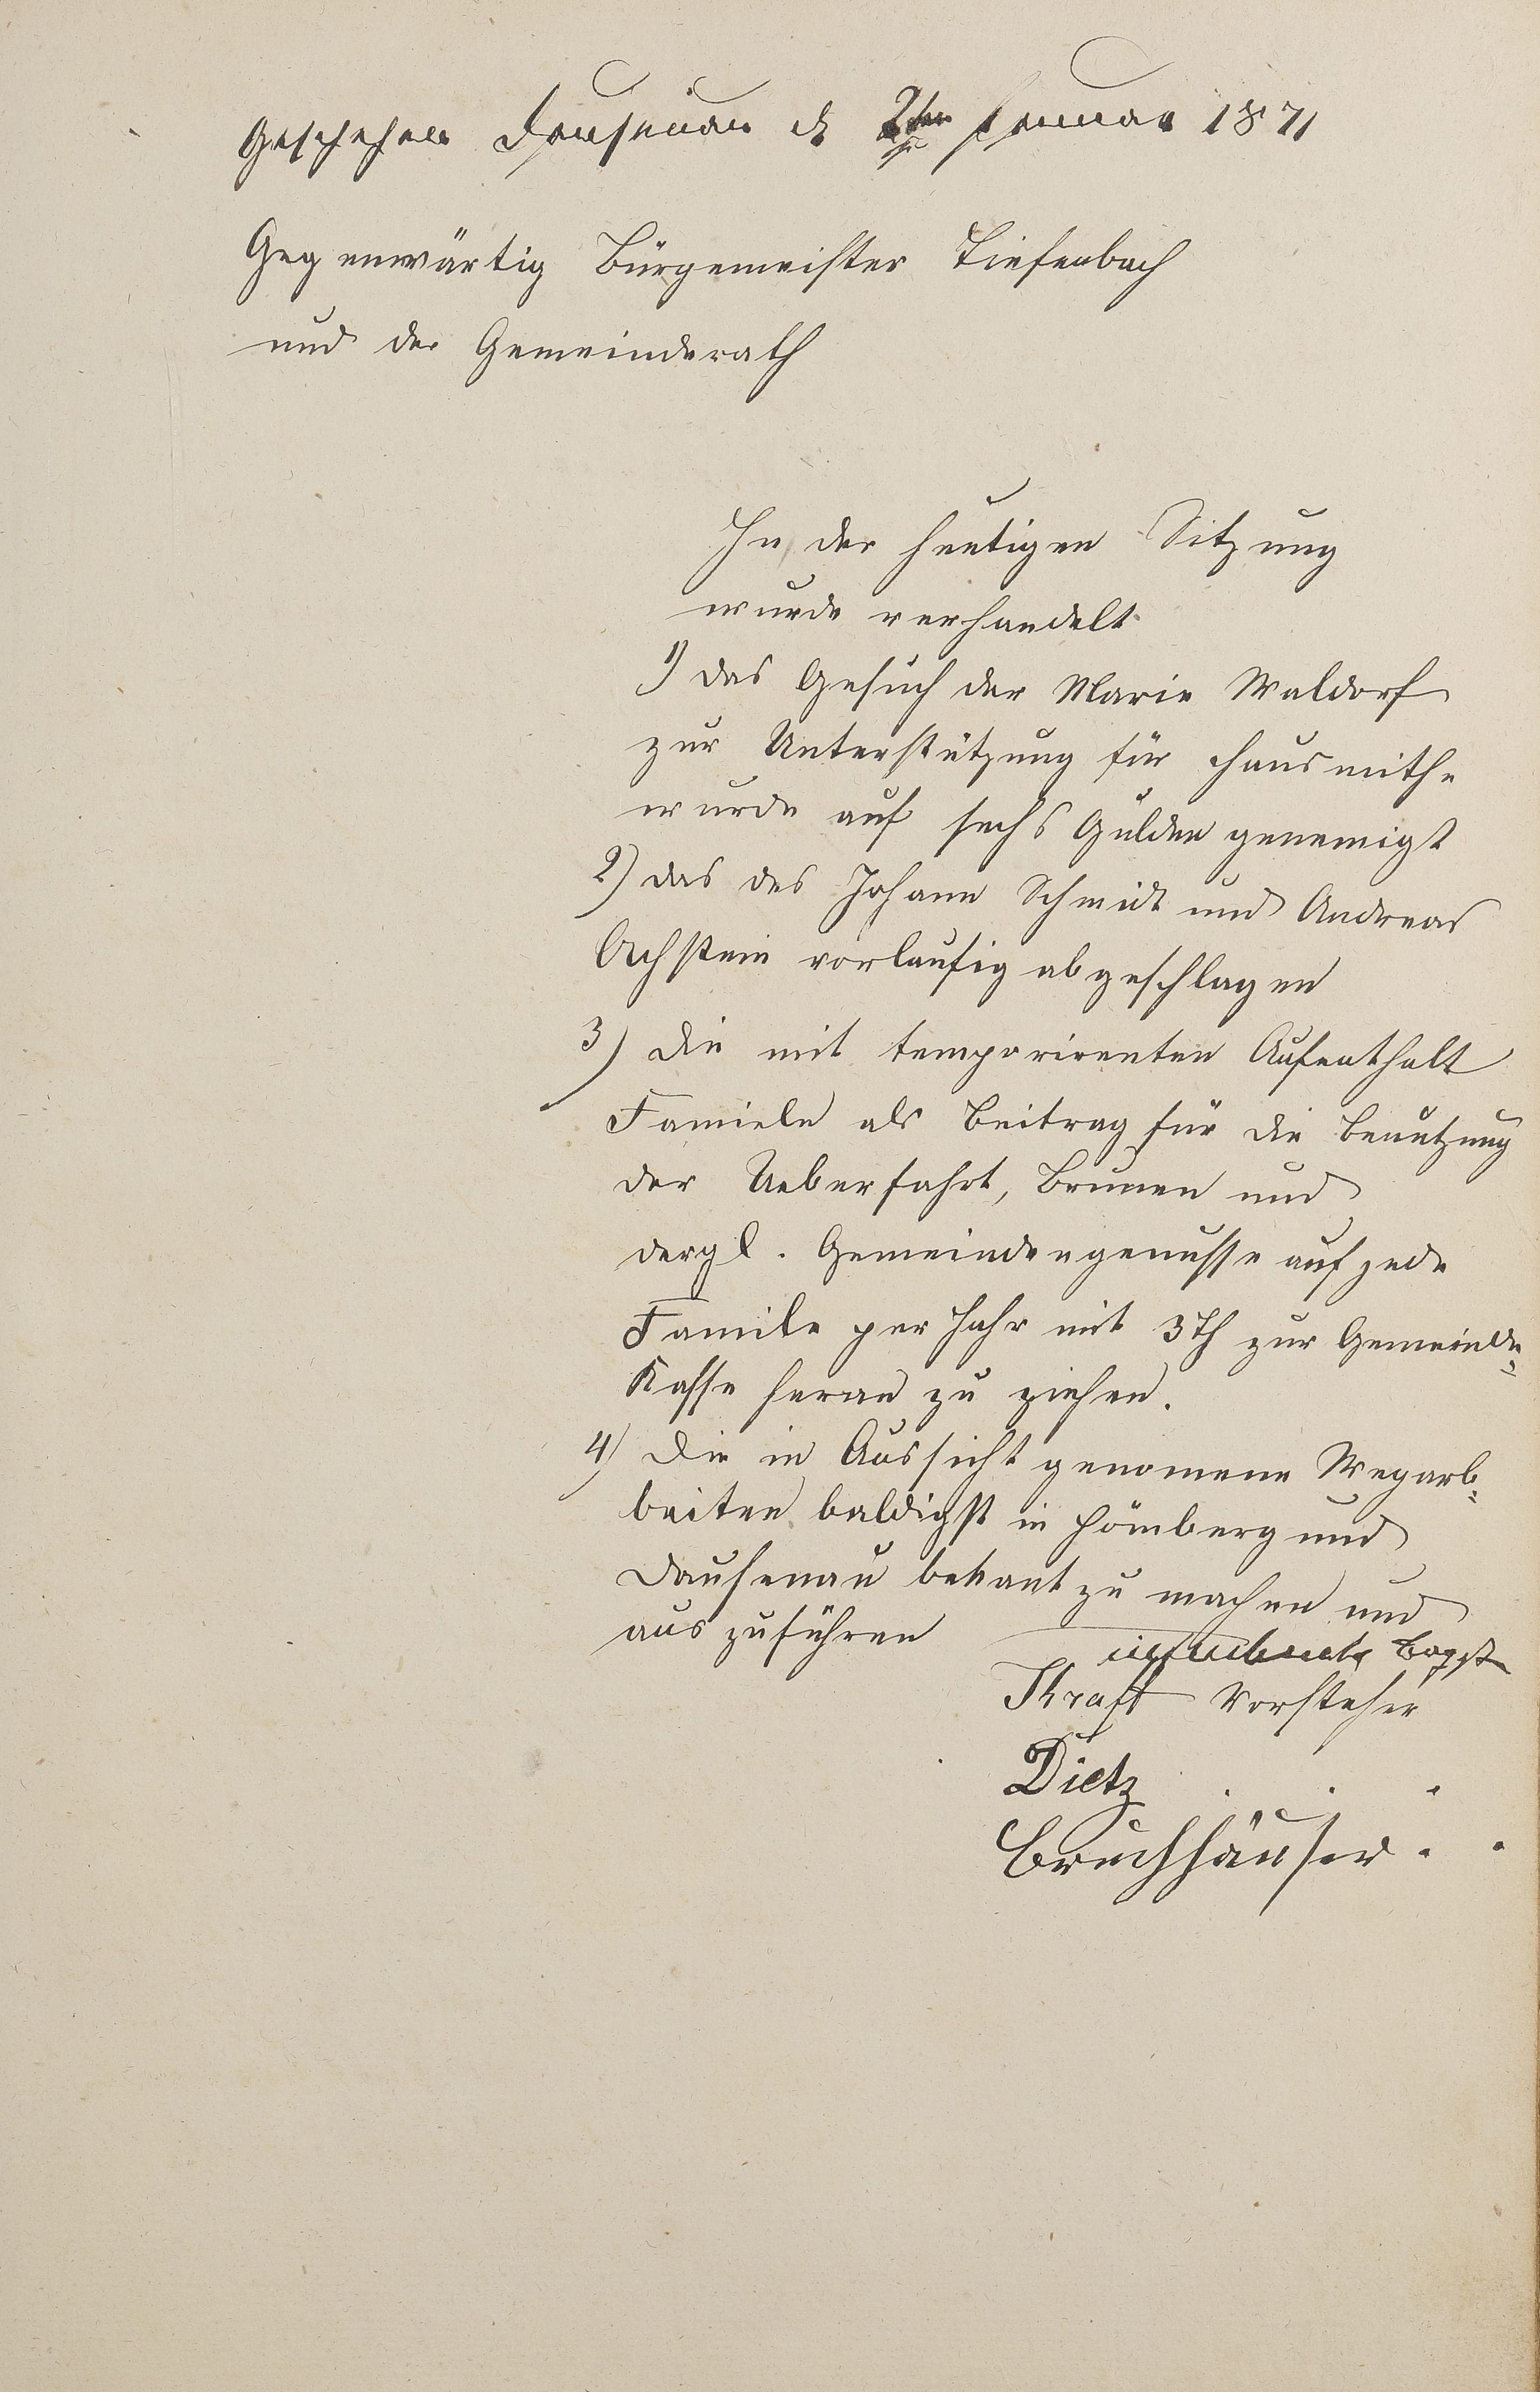 Geschehen Dausenau d 2ten Januar 1871
Gegenwärtig Bürgemeister Tiefenbach
und der Gemeinderath
In der heutigen Sitzung
wurde verhandelt
1) das Gesuch der Marie Waldorf
zur Unterstützung für Hausmithe
wurde auf sechs Gulden genemigt
2) das des Johann Schmidt und Andreas
Achstein vorlaufig abgeschlagen
3) die mit temporirenten Aufenthalt
Famieln als Beitrag für die Benutzung
der Ueberfahrt, Brunen und
dergl. Gemeindegenusse auf jede
Famile per Jahr mit 3Th zur Gemeinde=
Kasse heran zu ziehen.
4) die in Aussicht genomene Wegarb=
beiten baldigst in Hömberg und
Dausenau bekant zu machen und
aus zuführen
Kraft Vorsteher
Dietz
Bruchhäuser